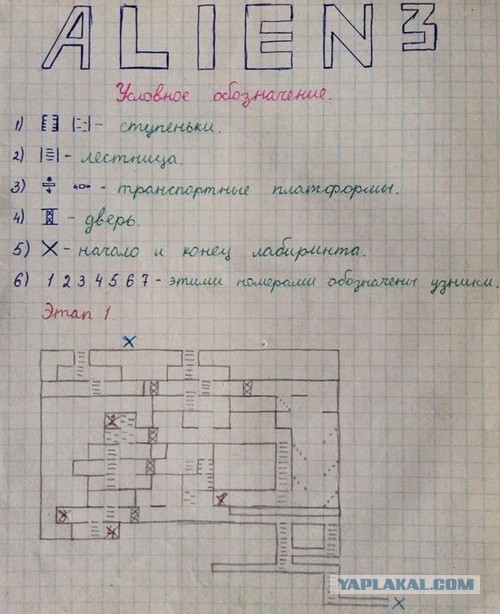 ALIEN 3
Условное обозначение.
1) - ступеньки.
2) - лестница.
3) - транспортные платформы.
4) - дверь.
5) X - начало и конец лабиринта.
6) 1 2 3 4 5 6 7 - этими номерами обозначены узники.
Этап 1
X
X
YAPLAKAL.COM